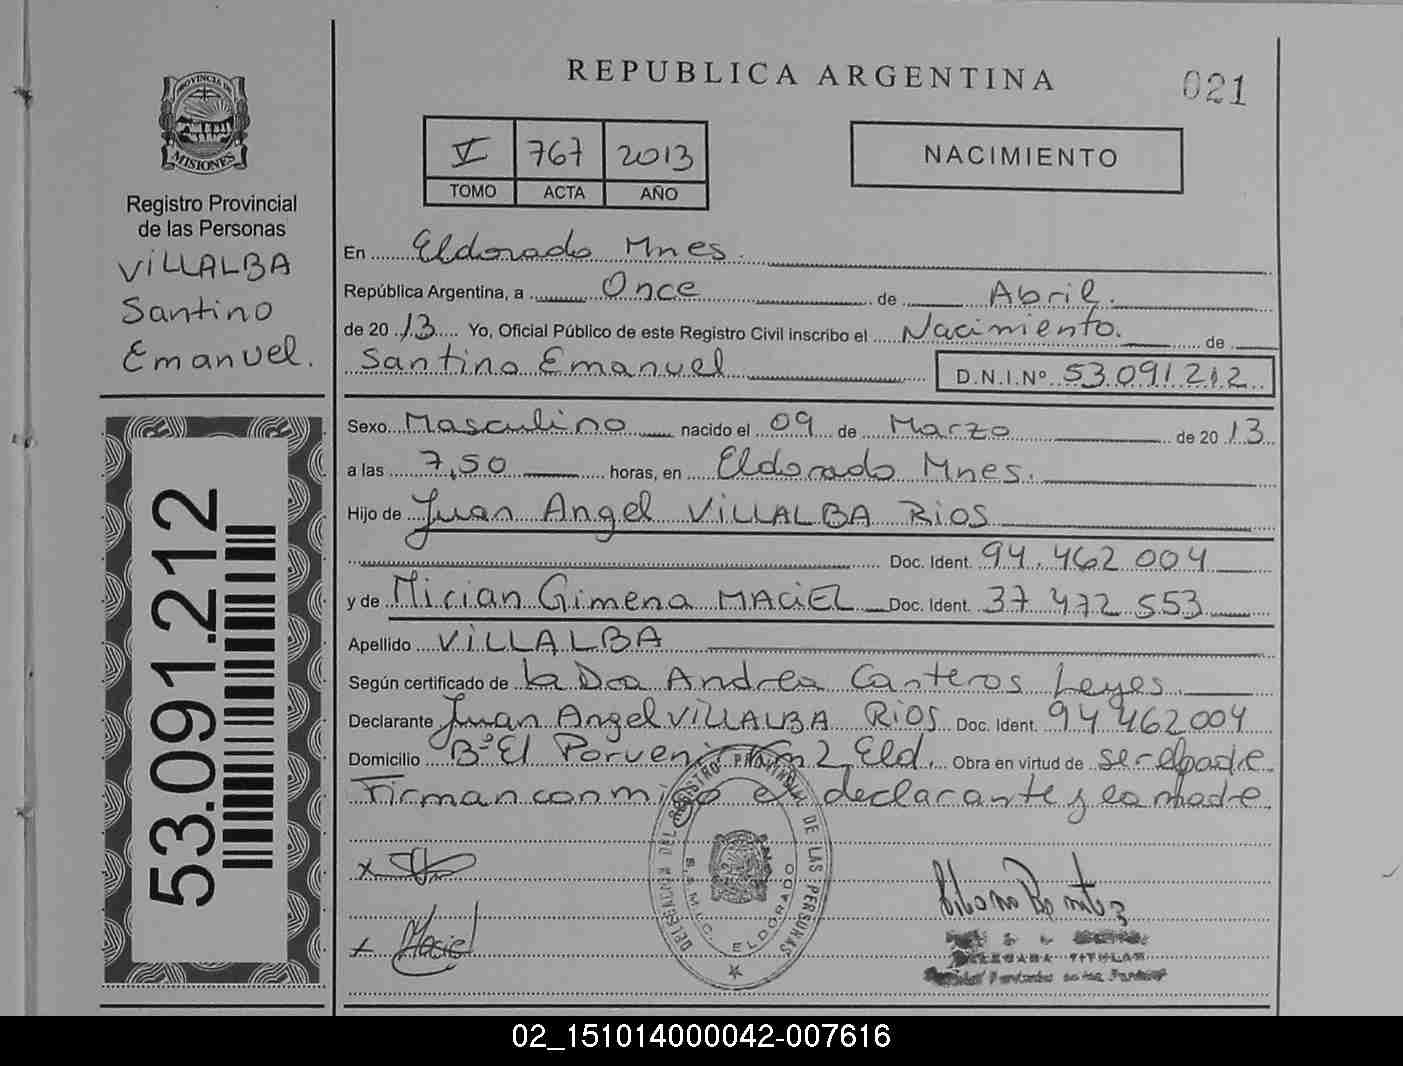 REPUBLICA ARGENTINA
021
PROVINCIA DE
MISIONES
Registro Provincial
de las Personas
VILLALBA
Santino
Emanuel.
53.091.212
V 767 2013
TOMO ACTA AÑO
NACIMIENTO
En Eldorado Mnes.
República Argentina, a Once de Abril.
de 2013 Yo, Oficial Público de este Registro Civil inscribo el Nacimiento. de
Santino Emanuel D.N.I.Nº 53.091.212
Sexo Masculino nacido el 09 de Marzo de 2013
a las 7,50 horas, en Eldorado Mnes.
Hijo de Juan Angel VILLALBA RIOS
Doc. Ident. 94.462 004
y de Mirian Gimena MACIEL Doc. Ident. 37 472 553
Apellido VILLALBA
Según certificado de la Dra Andrea Canteros Leyes
Declarante Juan Angel VILLALBA RIOS Doc. Ident. 94 462 004
Domicilio Bº El Porvenir Km 2 Eld. Obra en virtud de ser el padre
Firman conmigo el declarante y la madre
x
x Maciel
DELEGACION DEL REGISTRO PROVINCIAL DE LAS PERSONAS
ELDORADO
DELEGADA TITULAR
02_151014000042-007616